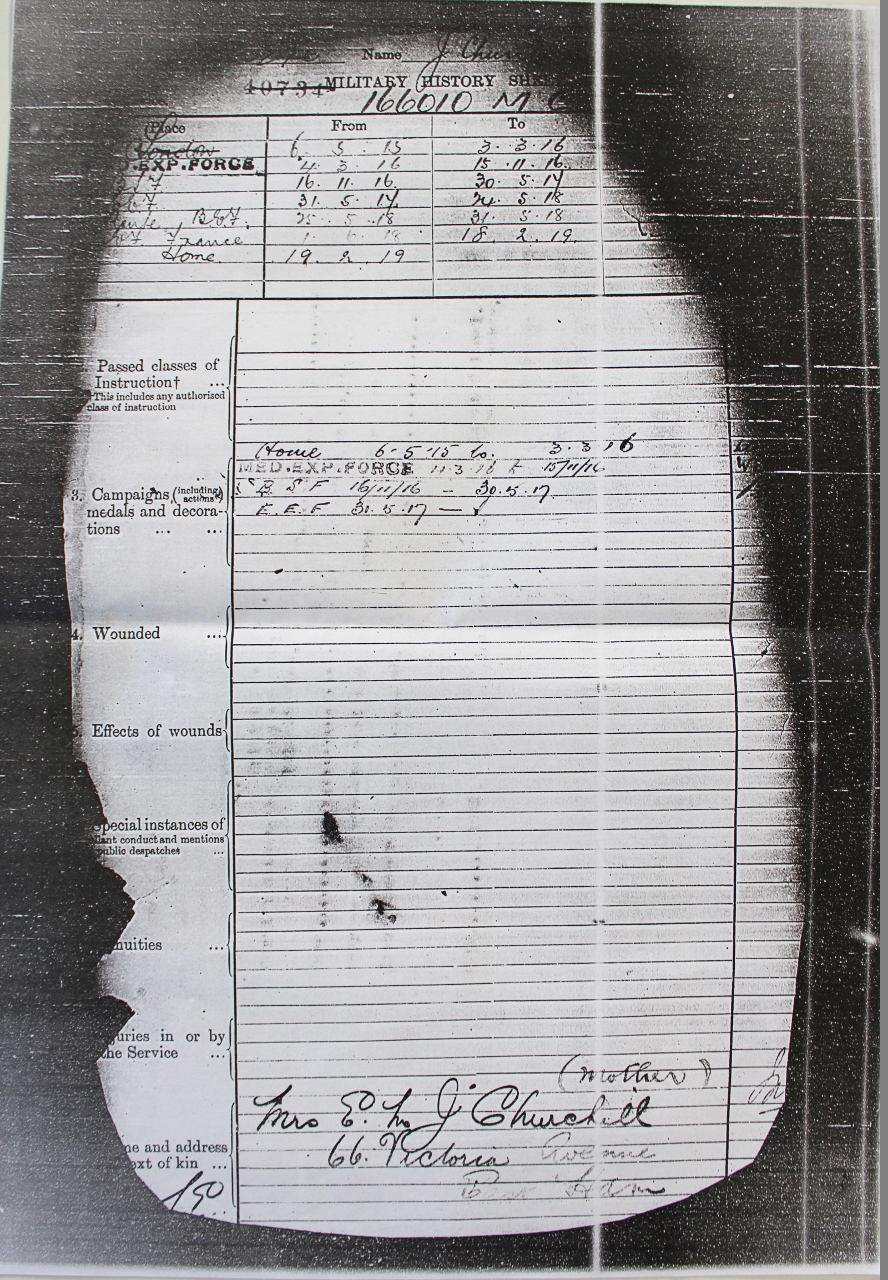 Name J Chur
40734 MILITARY HISTORY SHE
166010 M
Place From To
London 6. 5. 15 3. 3. 16
D.EXP.FORCE 4 3 16 15. 11. 16.
16. 11. 16. 30. 5. 17
31. 5. 17. 24. 5. 18
B.E.F. 25. 5. 18 31. 5. 18
France 1. 6. 18 18. 2. 19.
Home 19. 2. 19
Passed classes of
Instruction† ...
†This includes any authorised
class of instruction
Home 6-5-15 to. 3.3.16
MED.EXP.FORCE 11.3.16 t 15/11/16
3. Campaigns, (including actions)
B S F 16/11/16 - 30.5.17.
medals and decora-
E.E.F 31.5.17 —
tions ... ...
4. Wounded ...
Effects of wounds
Special instances of
lant conduct and mentions
public despatches ...
nuities ...
juries in or by
the Service ...
(Mother)
Mrs E. M J Churchill
66. Victoria Avenue
me and address
ext of kin ...
Ham